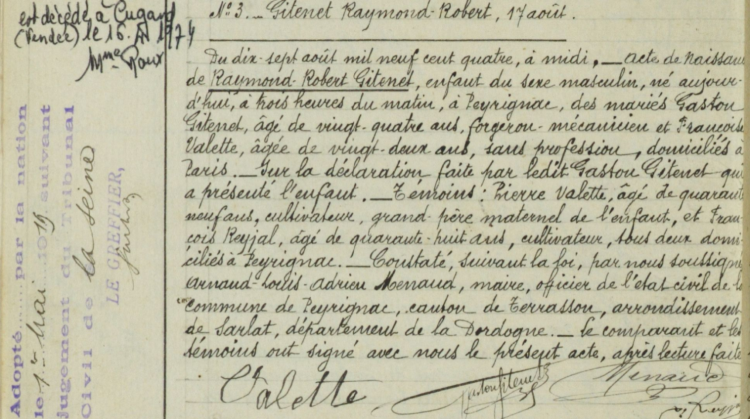 est décédé à Cugand
(Vendée) le 16.
1974
Adopté ..... par la nation
le 1er Mai 1919 suivant
jugement du Tribunal
Civil de la Seine
LE GREFFIER,
No 3. _ Gitenet Raymond-Robert, 17 août.
Du dix-sept août mil neuf cent quatre, à midi, _ acte de naissan
de Raymond-Robert Gitenet, enfant du sexe masculin, né aujour-
d'hui, à trois heures du matin, à Peyrignac, des mariés Gaston
Gitenet, âgé de vingt-quatre ans, forgeron-mécanicien et Françoise
Valette, âgée de vingt-deux ans, sans profession, domiciliés à
Paris. _ Sur la déclaration faite par ledit Gaston Gitenet qui
a présenté l'enfant. _ Témoins: Pierre Valette, âgé de quarante
neuf ans, cultivateur, grand-père maternel de l'enfant, et Fran-
çois Rejjal, âgé de quarante-huit ans, cultivateur, tous deux domi
ciliés à Peyrignac. _ Constaté, suivant la loi, par nous soussigné
Arnaud-Louis-Adrien Menaud, maire, officier de l'état civil de la
commune de Peyrignac, canton de Terrasson, arrondissement
de Sarlat, département de la Dordogne. _ le comparant et les
témoins ont signé avec nous le présent acte, après lecture faite
Valette
Menaud